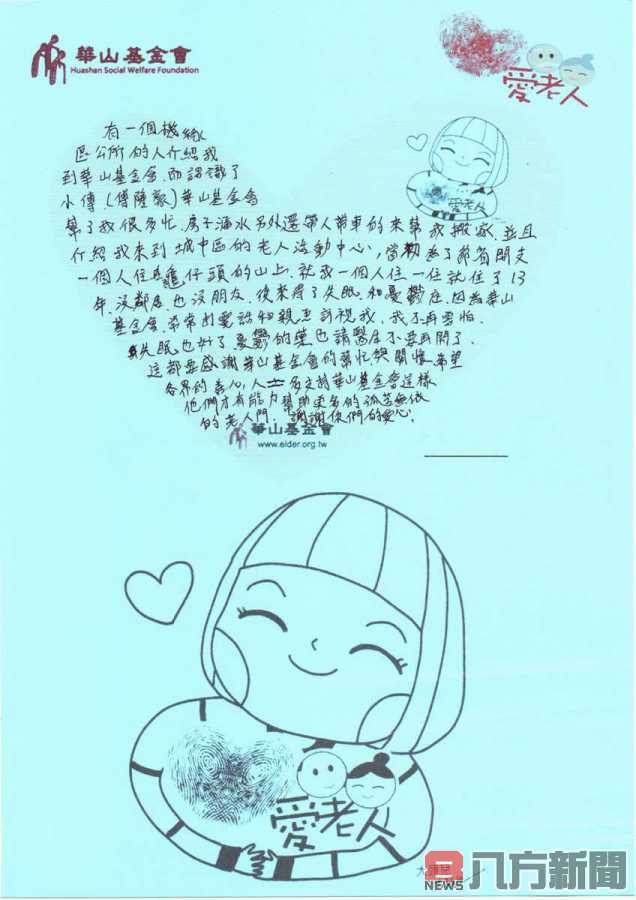 華山基金會
Huashan Social Welfare Foundation
愛老人
有一個機緣
區公所的人介紹我
到華山基金會,而認識了
小傅.(傅薩敏)華山基金會
幫了我很多忙.房子漏水另外還帶人帶車的來幫我搬家.並且
介紹我來到城中區的老人活動中心,當初為了節省開支
一個人住在龜仔頭的山上.就我一個人住一住就住了13
年,沒鄰居也沒朋友,後來得了失眠和憂鬱症.因為華山
基金會,常常打電話和親至訪視我,我不再害怕.
失眠也好了憂鬱的藥也請醫生不要再開了.
這都要感謝華山基金會的幫忙與關懷.希望
各界的善心人士多支持華山基金會這樣
他們才有能力幫助更多的孤苦無依
的老人們.謝謝你們的愛心.
愛老人
華山基金會
www.elder.org.tw
愛老人
NEWS 八方新聞